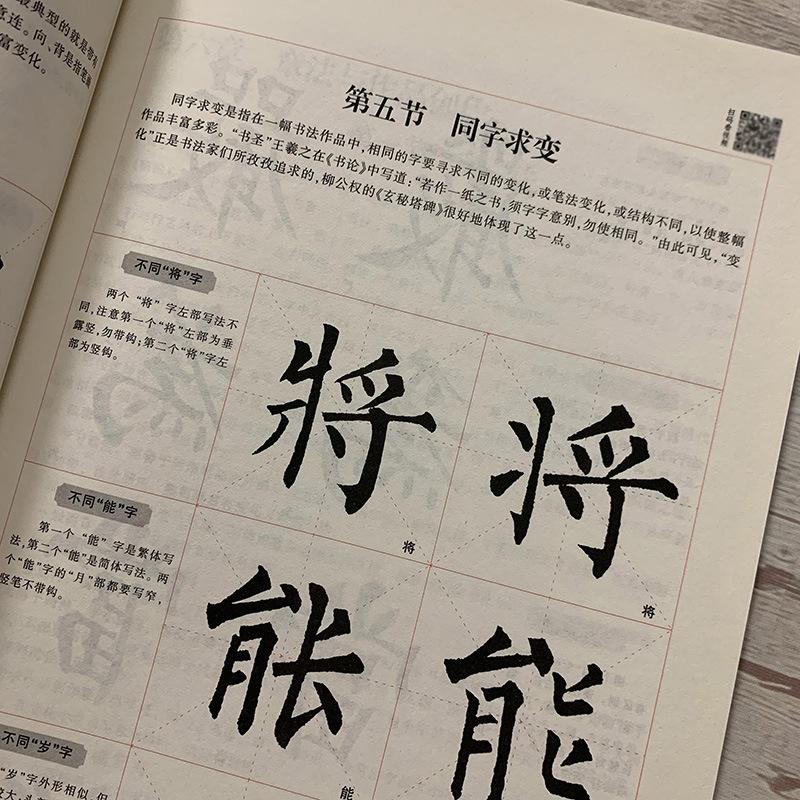 最典型的就是带有
意连。向、背是指笔画
富变化。
第五节 同字求变
扫码看视频
同字求变是指在一幅书法作品中,相同的字要寻求不同的变化,或笔法变化,或结构不同,以使整幅
作品丰富多彩。“书圣”王羲之在《书论》中写道:“若作一纸之书,须字字意别,勿使相同。”由此可见,“变
化”正是书法家们所孜孜追求的,柳公权的《玄秘塔碑》很好地体现了这一点。
不同“将”字
两个“将”字左部写法不
同,注意第一个“将”左部为垂
露竖,勿带钩;第二个“将”字左
部为竖钩。
將 将
将
将
不同“能”字
第一个“能”字是繁体写
法,第二个“能”是简体写法。两
个“能”字的“月”部都要写窄,
竖笔不带钩。
能 能
能
不同“岁”字
“岁”字外形相似,但